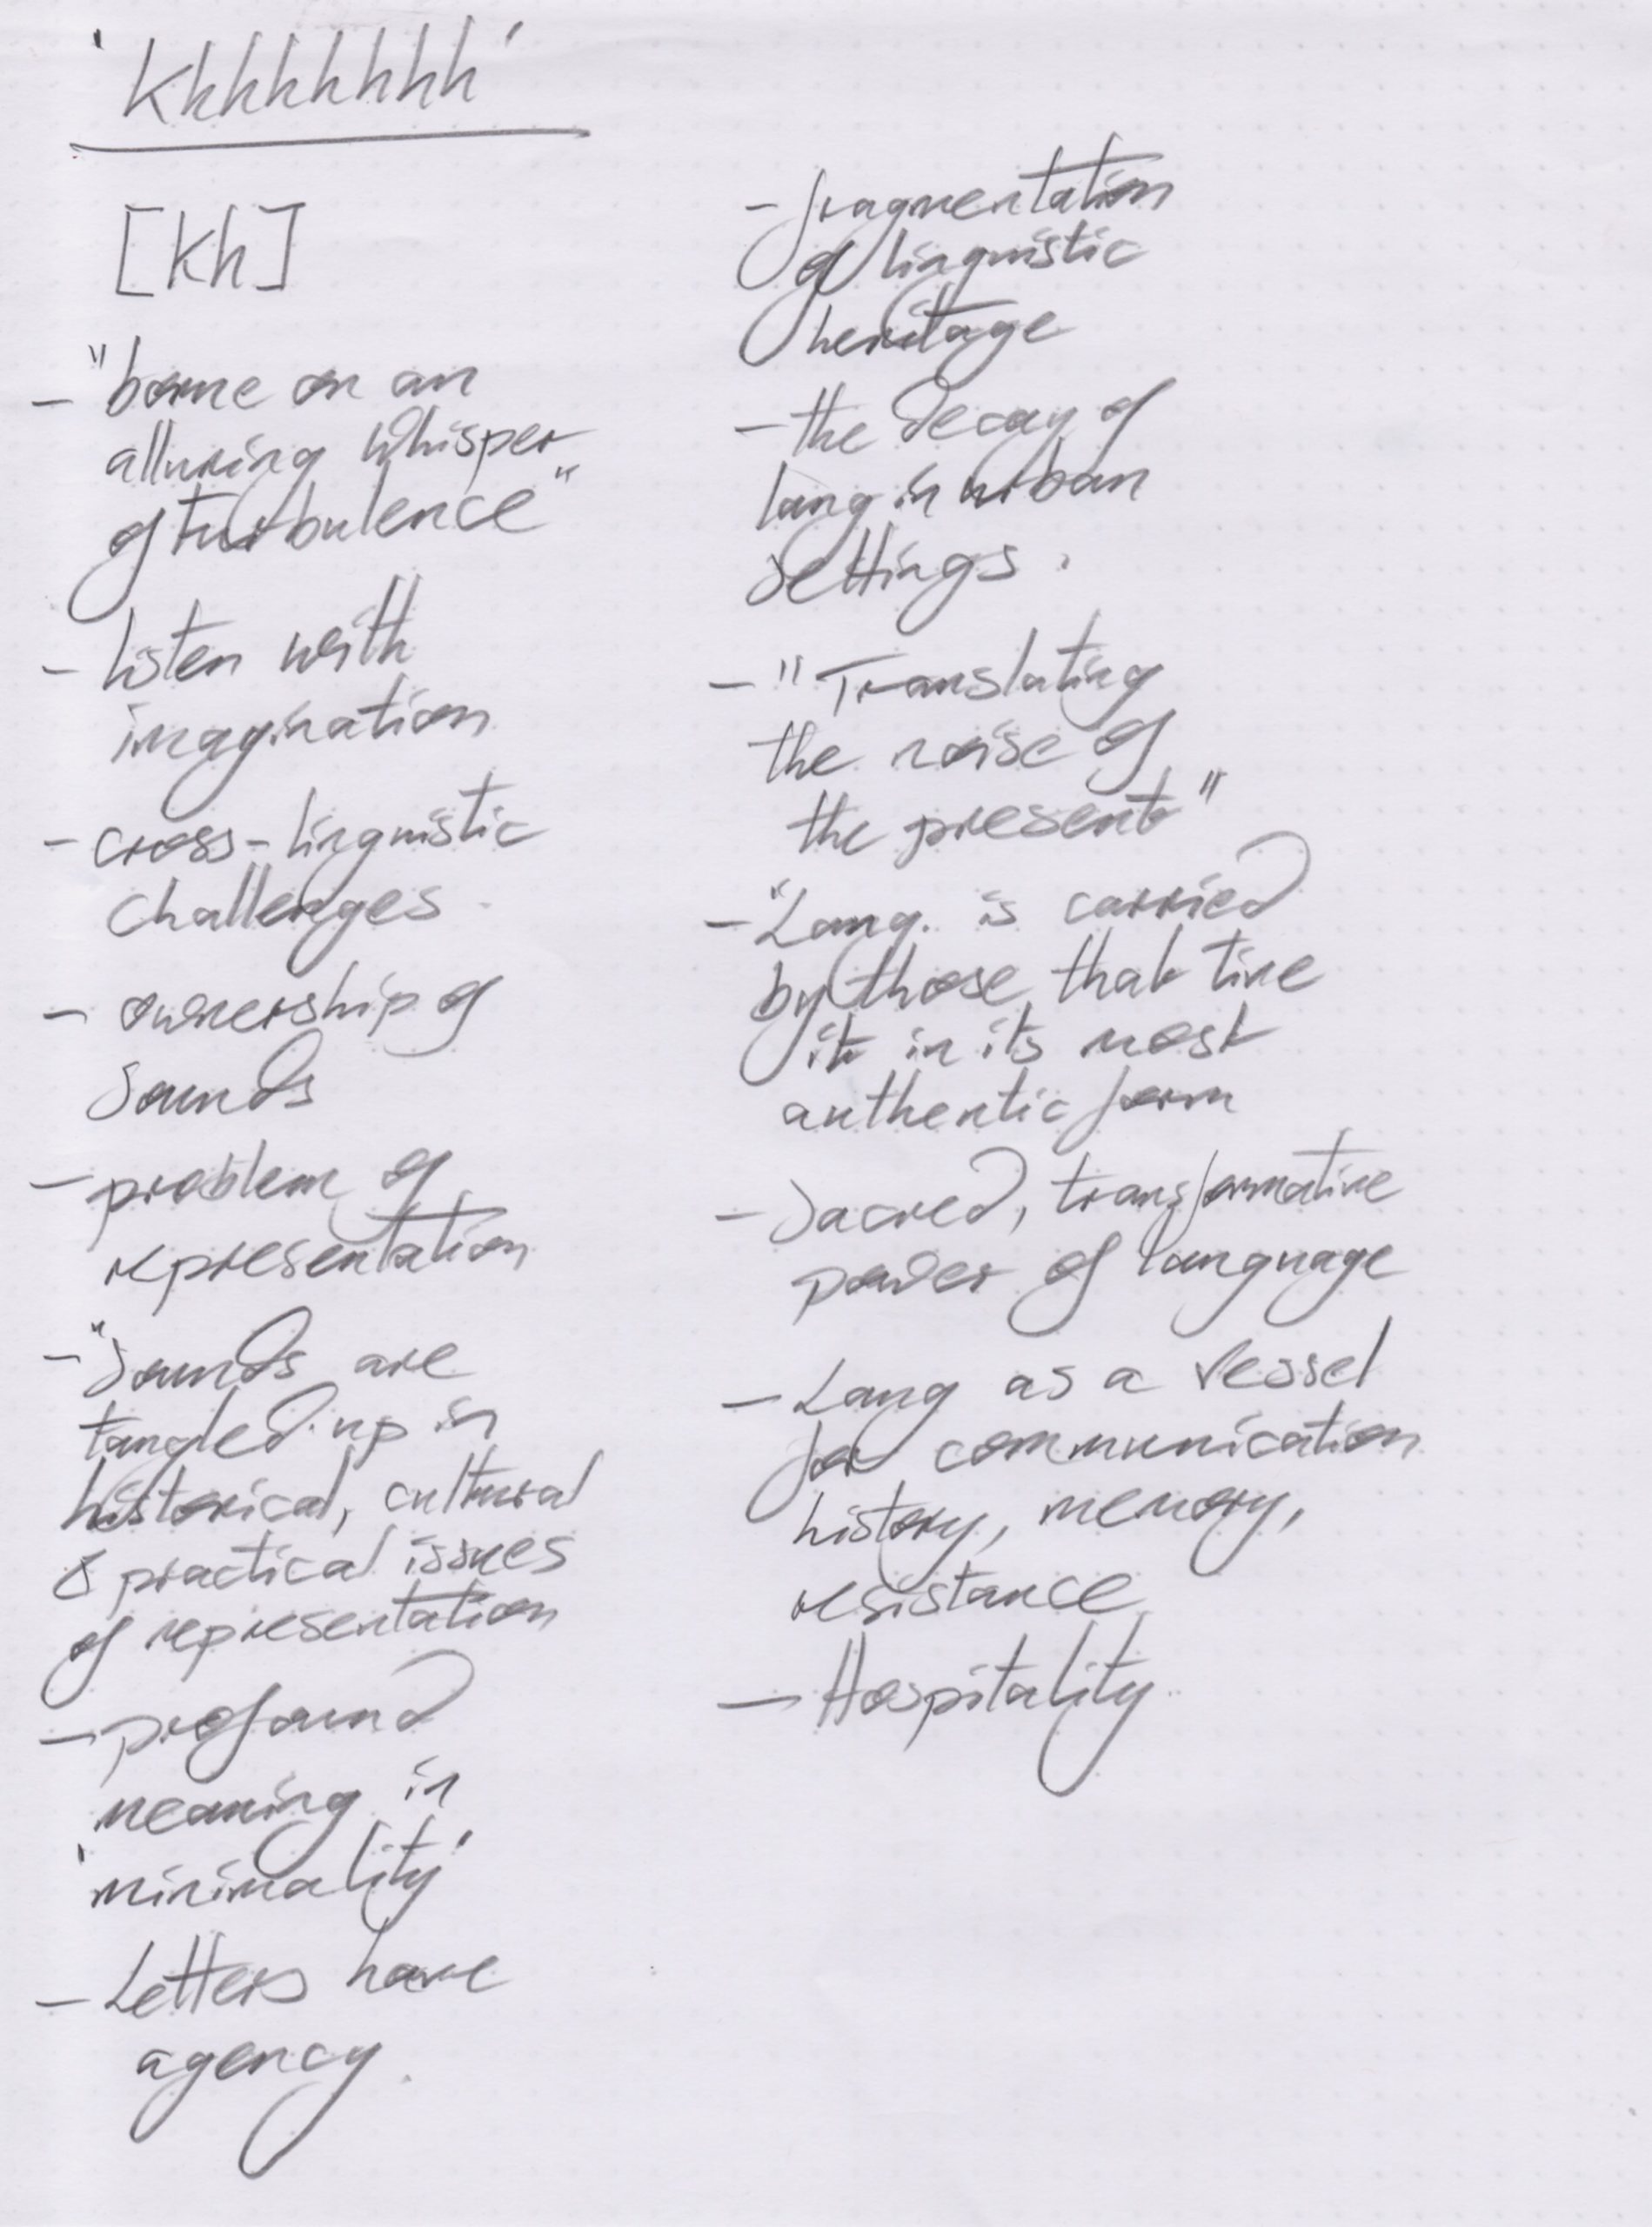 'Khhhhhhh'
[kh]
- "borne on an
alluring whisper
of turbulence"
- listen with
imagination
- cross-linguistic
challenges
- ownership of
sounds
- problem of
representation
- "Sounds are
tangled up in
historical, cultural
& practical issues
of representation
- profound
meaning in
'minimality'
- Letters have
agency.
- fragmentation
of linguistic
heritage
- the decay of
lang in urban
settings.
- "Translating
the noise of
the present"
- "Lang. is carried
by those that live
it in its most
authentic form
- Sacred, transformative
power of language
- Lang as a vessel
for communication
history, memory,
resistance
- Hospitality